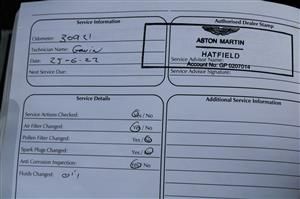 Service Information
Authorised Dealer Stamp
Odometer: 30921
Technician Name: Gavin
Date: 29-6-22
Next Service Due:
ASTON MARTIN
HATFIELD
Service Advisor Name:
Account No: GP 0207014
Service Advisor Signature:
Service Details
Additional Service Information
Service Actions Checked: Yes / No
Air Filter Changed: Yes / No
Pollen Filter Changed: Yes / No
Spark Plugs Changed: Yes / No
Anti Corrosion Inspection: Yes / No
Fluids Changed: oil